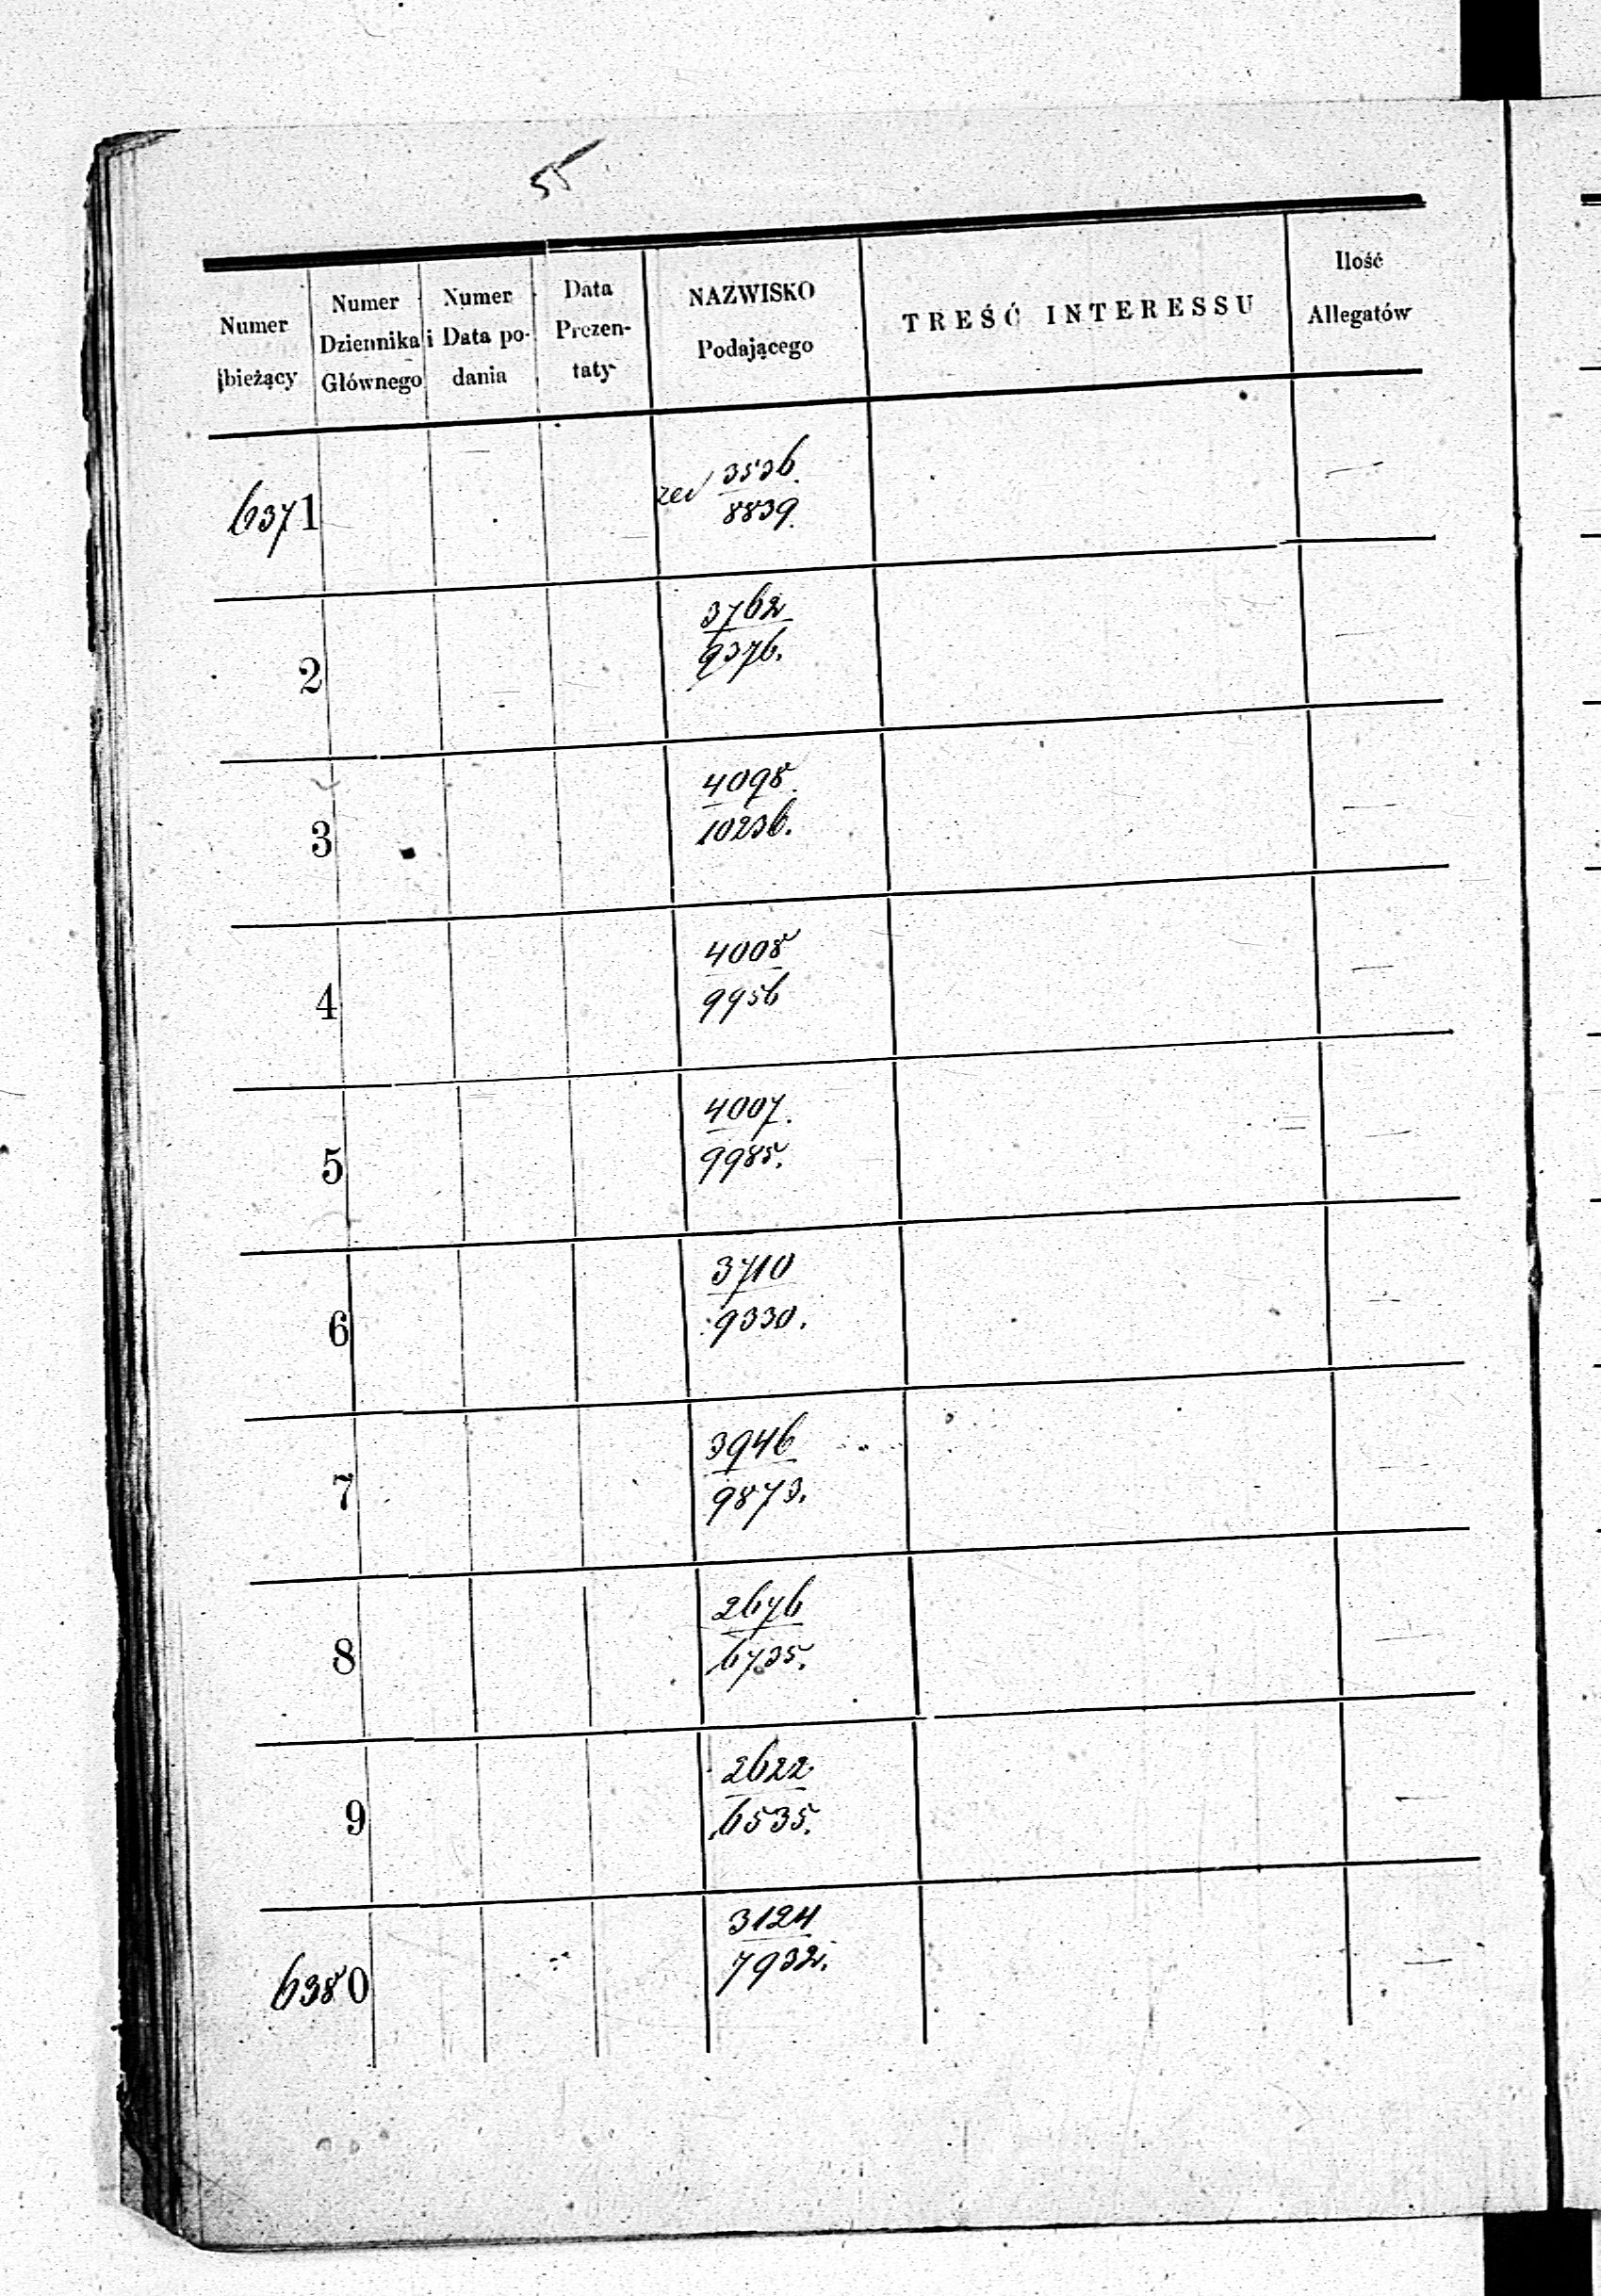 55
Numer bieżący
Numer Dziennika Głównego
Numer i Data podania
Data Prezentaty
NAZWISKO Podającego
TREŚĆ INTERESSU
Ilość Allegatów
6371
3536.
8839.
2
3762
9376.
3
4098.
10236.
4
4008
9956
5
4007.
9985.
6
3710
9330.
7
3946
9873.
8
2676
6735.
9
2622
6535.
6380
3124
7932.